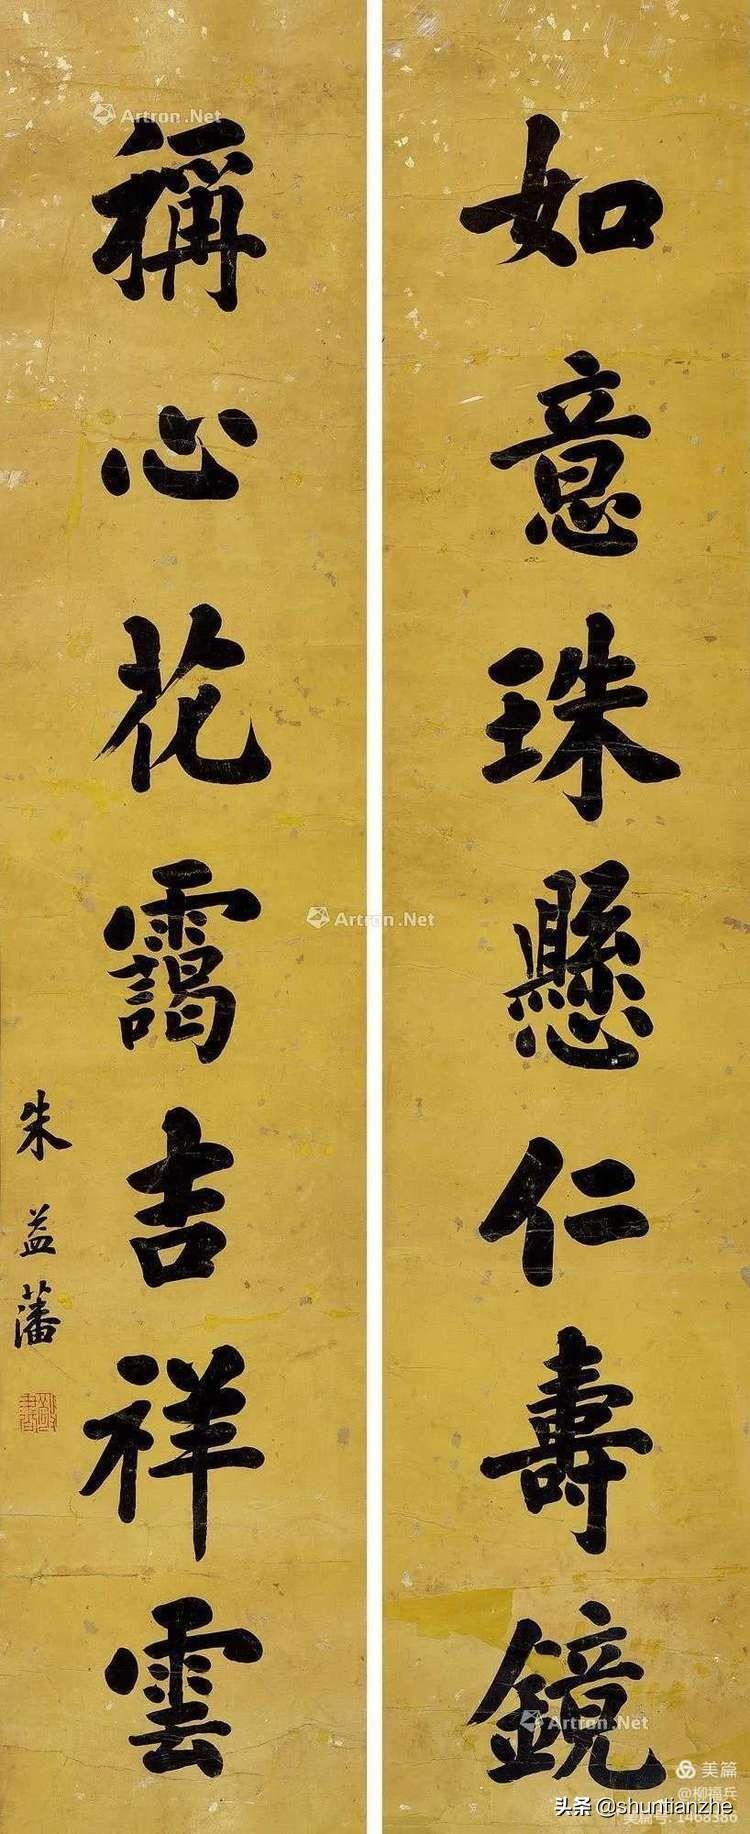 如意珠懸仁壽鏡
稱心花靄吉祥雲
朱益藩
Artron.Net
Artron.Net
Artron.Net
美篇
@柳福兵
美篇号: 1468380
头条 @shuntianzhe